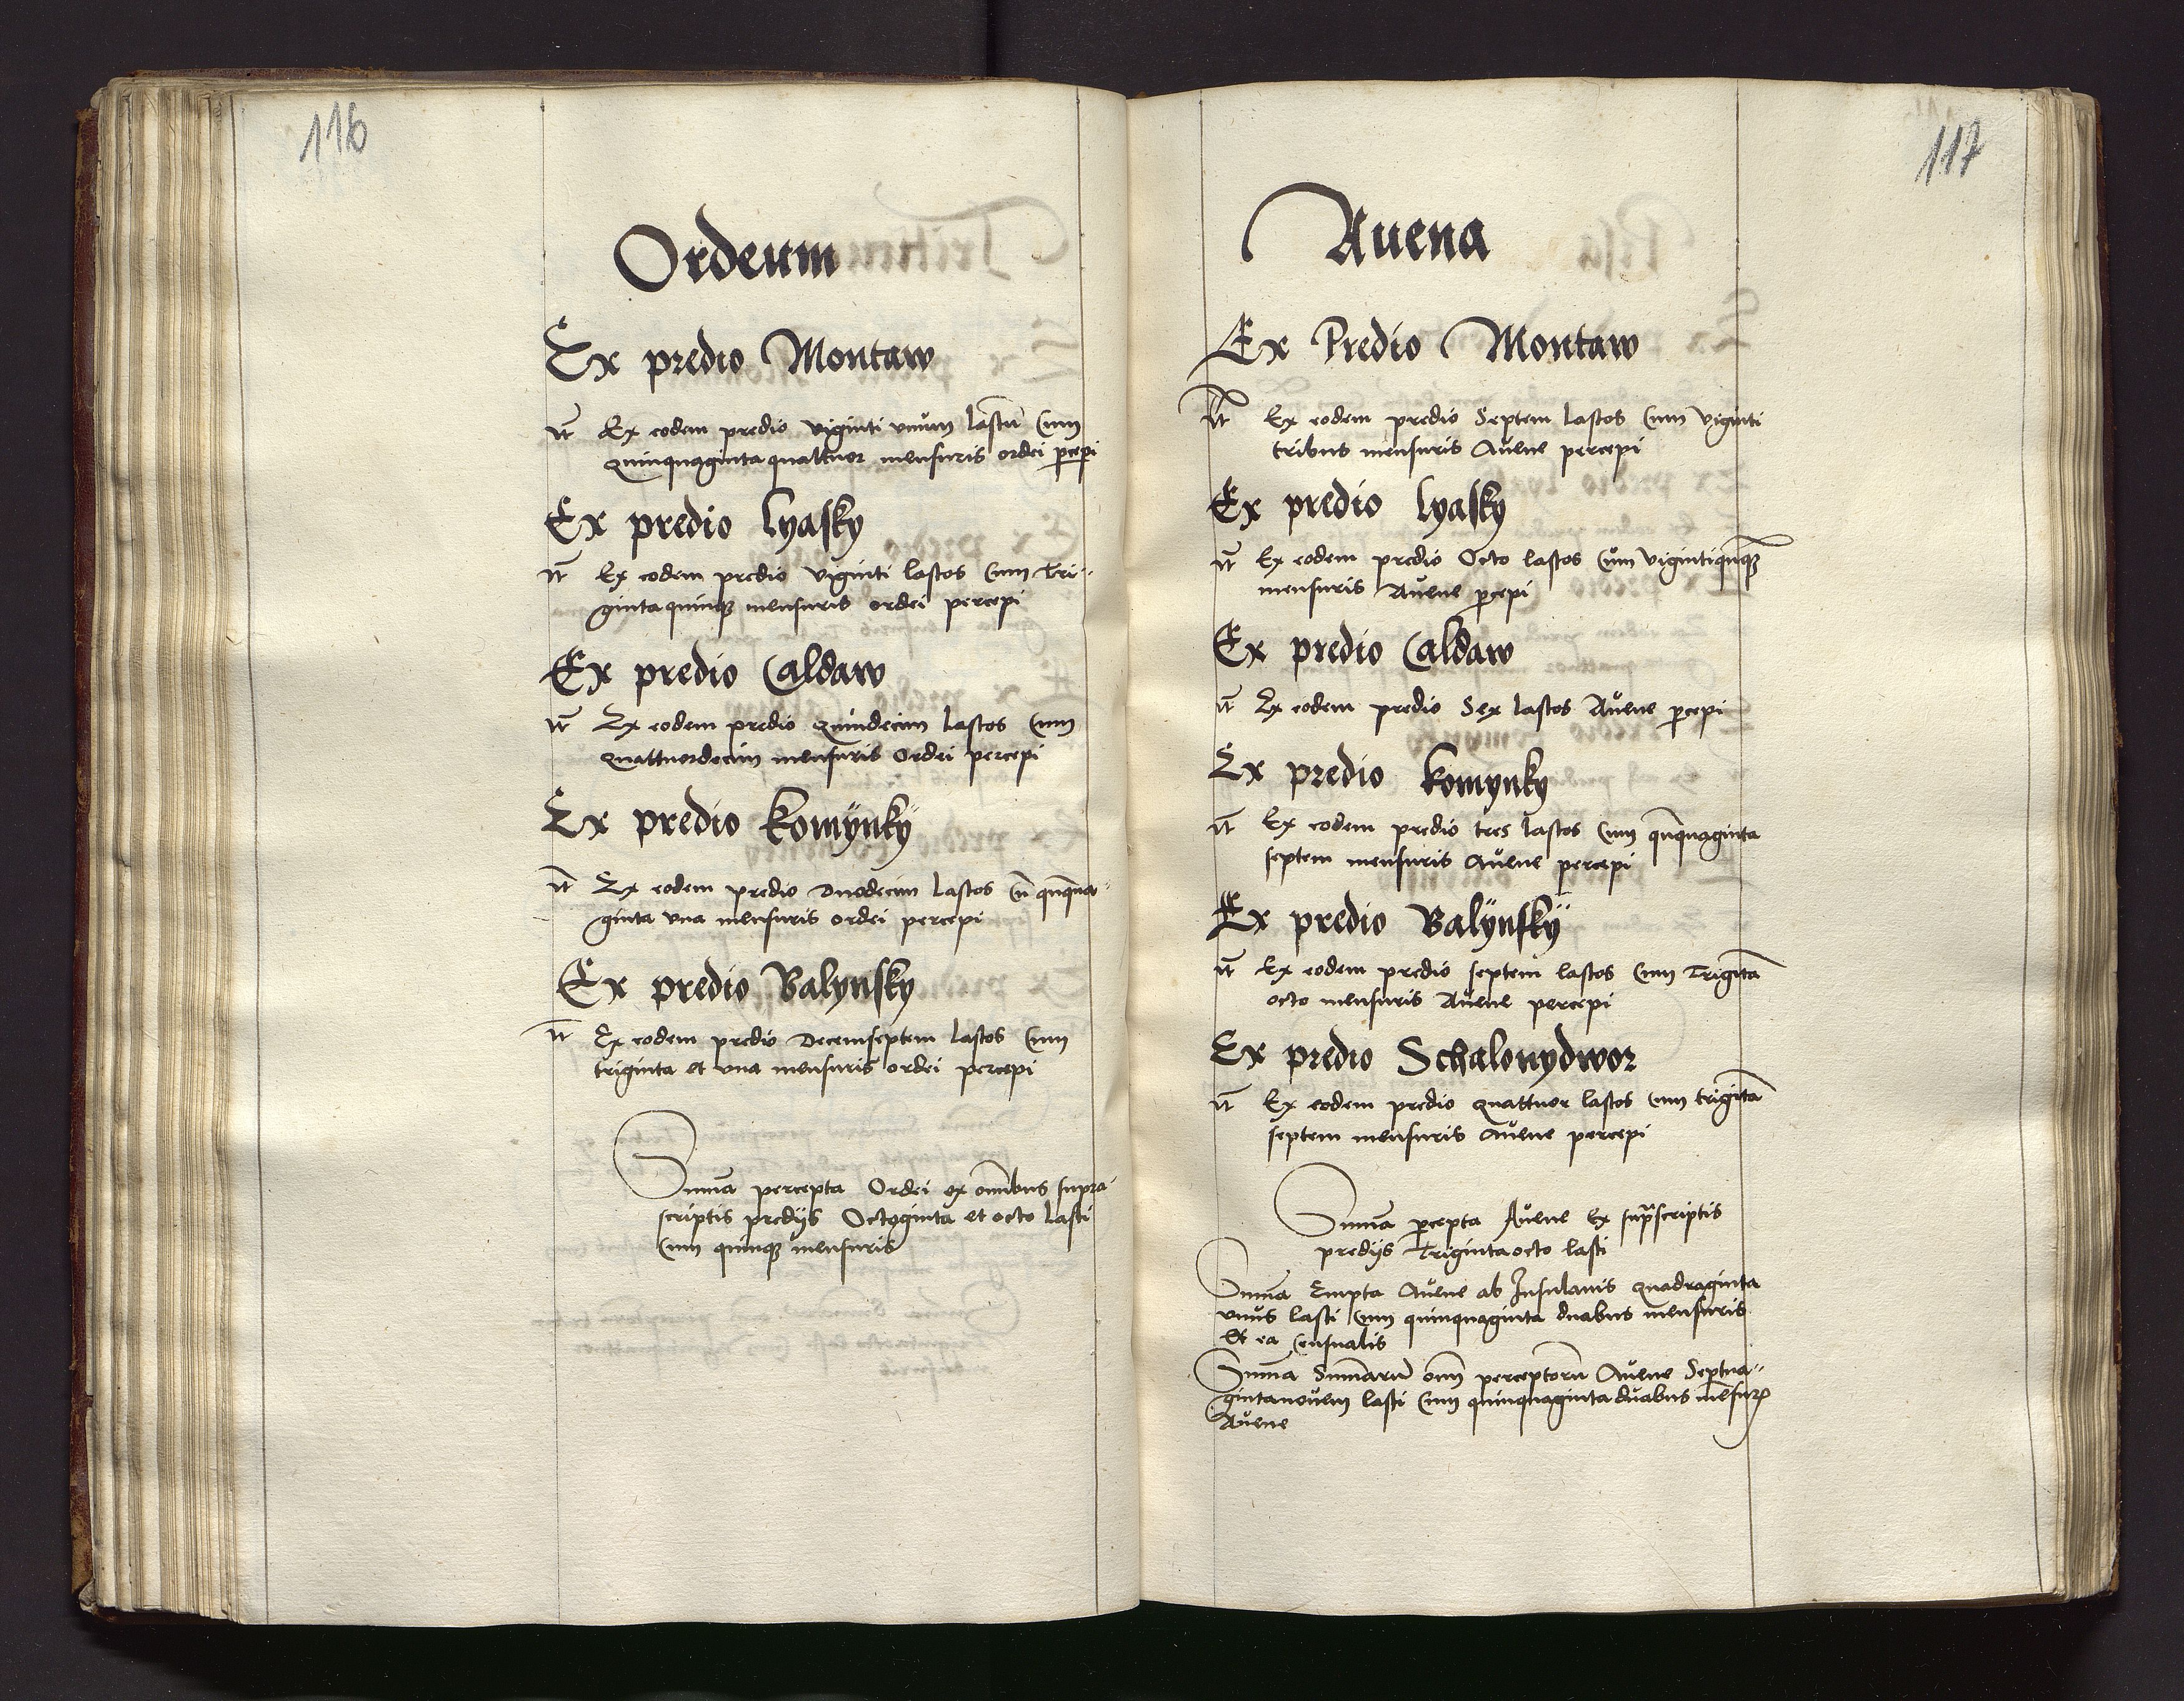 116
Ordeum
Ex predio Montaw
It Ex eodem predio viginti vnum lastu cum
quinquaginta quattuor mensuris ordei pcepi
Ex predio Lyasky
It Ex eodem predio viginti lastos cum Tri-
ginta quinq mensuris ordei percepi
Ex predio Caldaw
It Ex eodem predio quindecim lastos cum
quattuordecim mensuris Ordei percepi
Ex predio Komÿnkÿ
It Ex eodem predio Duodecim lastos cu qnqua-
ginta vna mensuris ordei percepi
Ex predio Balynsky
It Ex eodem predio Decemseptem lastos cum
triginta et vna mensuris ordei percepi
Suma percepta Ordei ex omibus supra-
scriptis predijs Octoginta et octo lasti
cum quinq mensuris
117
Auena
Ex Predio Montaw
It Ex eodem predio Septem lastos cum viginti
tribus mensuris Auene percepi
Ex predio Lyasky
It Ex eodem predio Octo lastos cum vigintiqnq
mensuris Auene pcepi
Ex predio Caldaw
It Ex eodem predio Sex lastos Auene pcepi
Ex predio Komynky
It Ex eodem predio tres lastos cum qnquaginta
septem mensuris Auene percepi
Ex predio Balÿnskÿ
It Ex eodem predio septem lastos cum Trigita
octo mensuris Auene percepi
Ex predio Schalonydwor
It Ex eodem predio quattuor lastos cum trigita
septem mensuris Auene percepi
Suma pcepta Auene Ex suprscriptis
predijs Triginta octo lasti
Suma Empta Auene ab Insulanis quadraginta
vnus lasti cum quinquaginta duabus mensuris
Et ea censualis
Suma Sumaru omi perceptoru Auene Septua-
gintanouem lasti cum quinquaginta duabus mesur
Auene